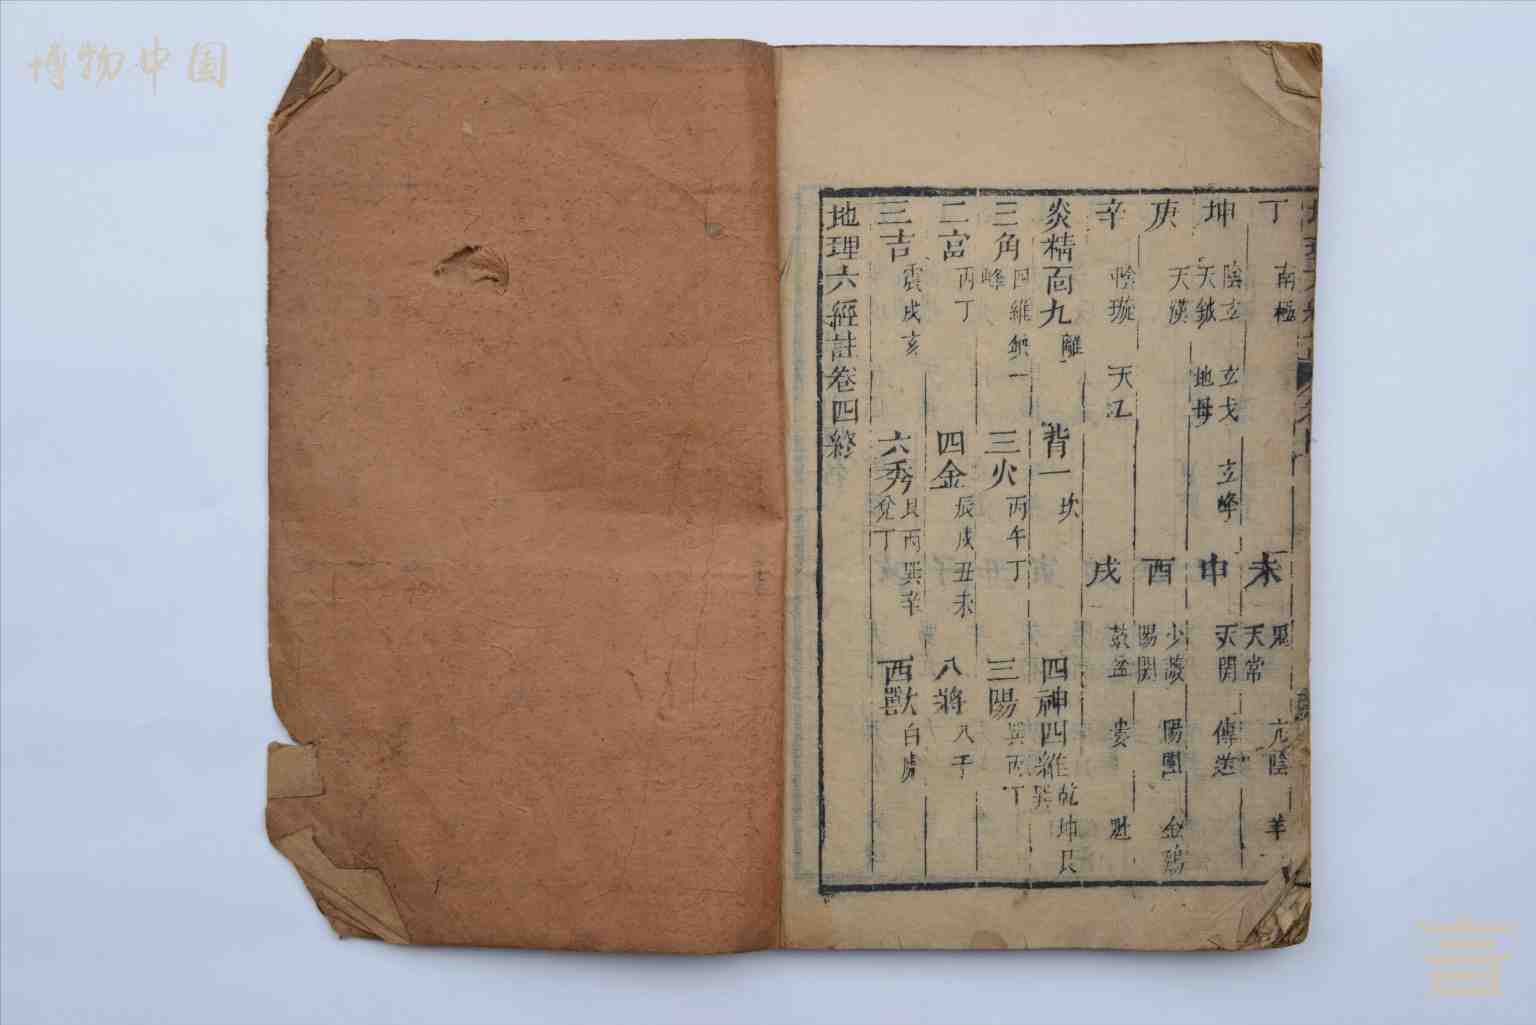 博物中国
丁 南極 未 鬼 天常 亢陰 羊
坤 陰玄 天鉞 玄戈 地母 玄峰 申 天關 傳送
庚 天漢 酉 少微 陽關 陽團 金鷄
辛 陰璇 天江 戌 鼓盆 婁 魁
炎精面九離 背一坎 四神四維乾坤艮巽
三角四維無一峰 三火丙午丁 三陽巽丙丁
二宮丙丁 四金辰戌丑未 八將八干
三吉震戌亥 六秀艮丙巽辛兌丁 西獸白虎
地理六經註卷四終
言